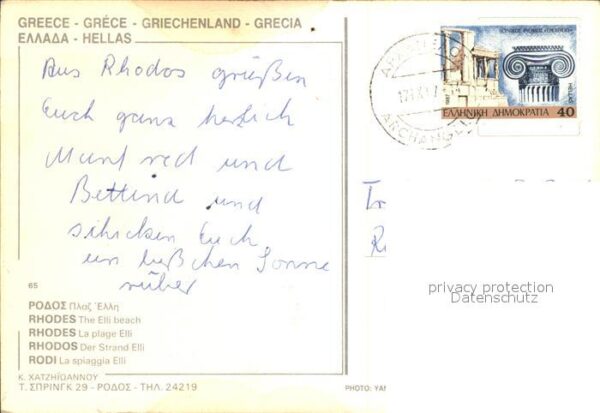 GREECE - GRÉCE - GRIECHENLAND - GRECIA
ΕΛΛΑΔΑ - HELLAS
Aus Rhodos grüßen
Euch ganz herzlich
Manfred und
Bettina und
schicken Euch
ein bißchen Sonne
rüber
65
ΡΟΔΟΣ Πλαζ Έλλη
RHODES The Elli beach
RHODES La plage Elli
RHODOS Der Strand Elli
RODI La spiaggia Elli
Κ. ΧΑΤΖΗΪΩΑΝΝΟΥ
Τ. ΣΠΡΙΝΓΚ 29 - ΡΟΔΟΣ - ΤΗΛ. 24219
PHOTO: YA
HELLAS
ΕΛΛΗΝΙΚΗ ΔΗΜΟΚΡΑΤΙΑ 40
privacy protection
Datenschutz